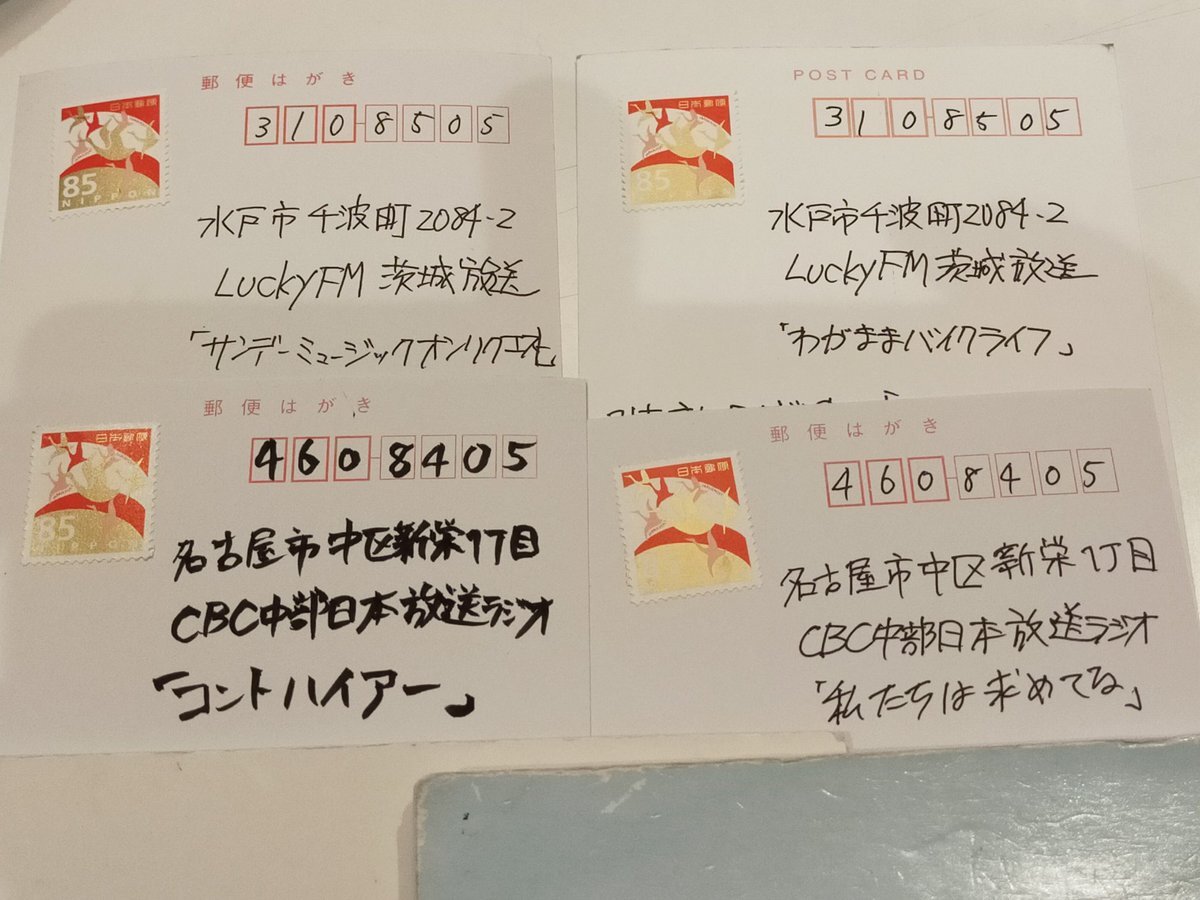 郵便はがき
日本郵便
85
NIPPON
3108505
水戸市千波町2084-2
LuckyFM 茨城放送
「サンデーミュージックオンリクエスト
POST CARD
日本郵便
85
3108505
水戸市千波町2084-2
LuckyFM 茨城放送
「わがままバイクライフ」
郵便はがき
日本郵便
85
NIPPON
4608405
名古屋市中区新栄1丁目
CBC中部日本放送ラジオ
「コントハイアー」
郵便はがき
日本郵便
4608405
名古屋市中区新栄1丁目
CBC中部日本放送ラジオ
「私たちは求めてな」